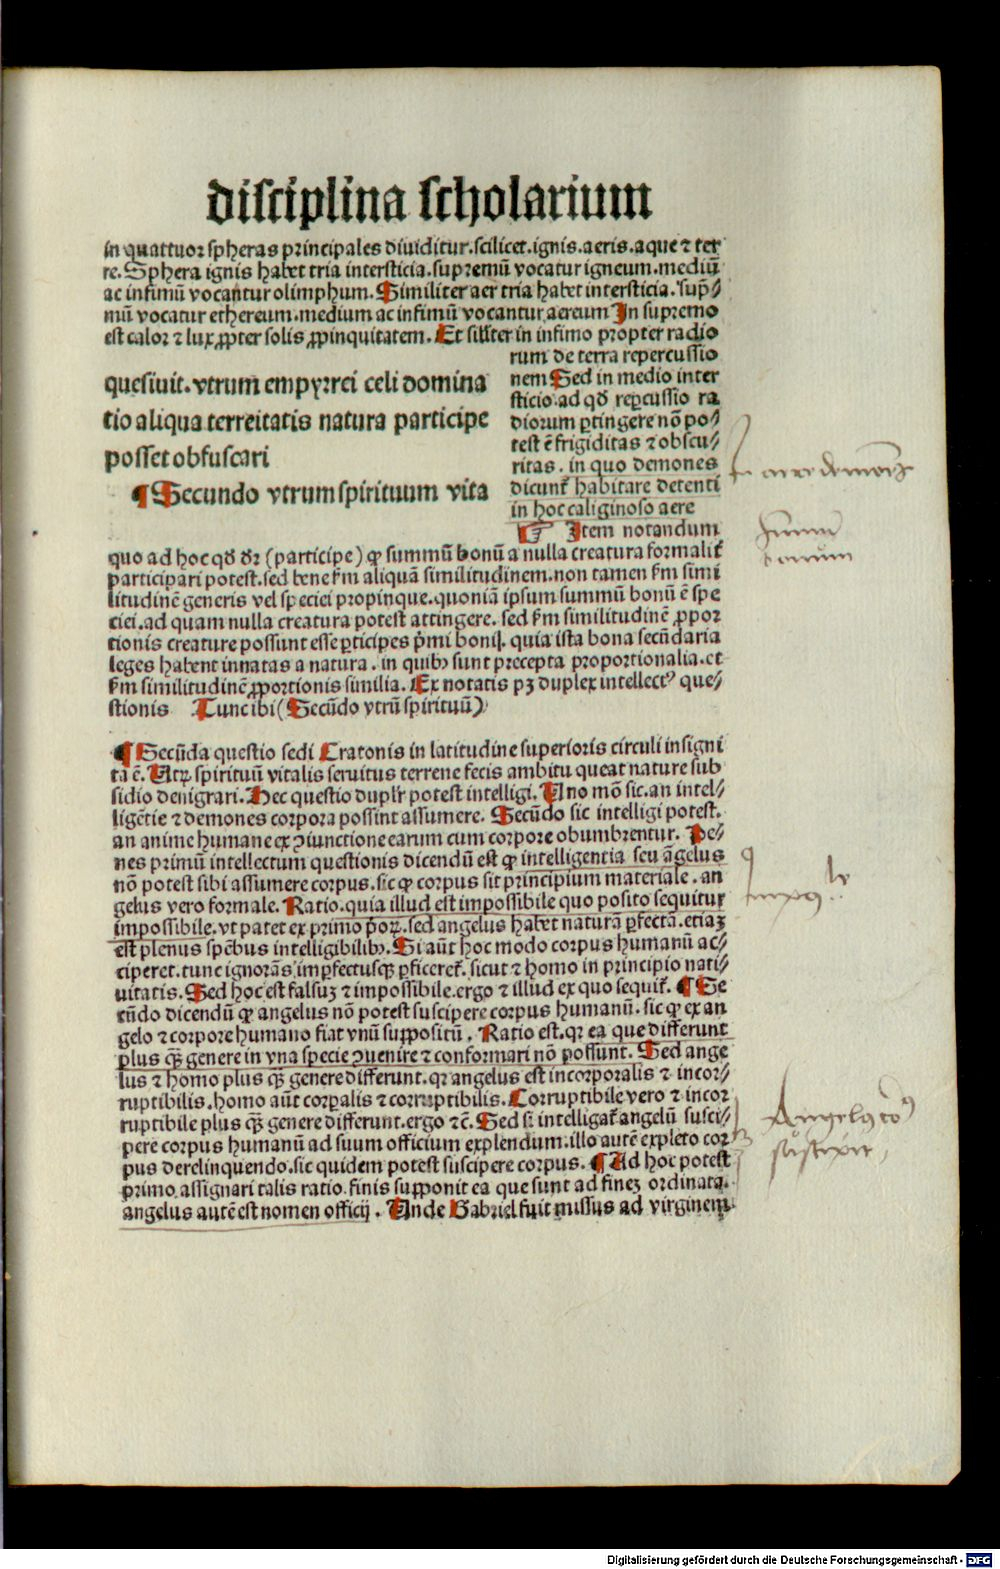 disciplina scholarium
in quattuor spheras principales diuiditur.scilicet.ignis.aeris.aque ⁊ ter
re.Sphera ignis habet tria intersticia.supremū vocatur igneum.mediū
ac infimū vocantur olimphum.Similiter aer tria habet intersticia.sup̄-
mū vocatur ethereum.medium ac infimū vocantur aereum In supremo
est calor ⁊ lux ꝓpter solis ꝓpinquitatem. Et silīter in infimo propter radio
rum de terra repercussio
nem Sed in medio inter
sticio.ad qd̄ reꝑcussio ra
diorum ꝑtingere nō po-
test ē frigiditas ⁊ obscu-
ritas. in quo demones
dicunt᷑ habitare detenti
in hoc caliginoso aere
quesiuit.vtrum empyrrei celi domina
tio aliqua terreitatis natura participe
posset obfuscari
¶ Secundo vtrum spirituum vita
☞ Item notandum
quo ad hoc qd̄ dr̄ (participe) ꝙ summū bonū a nulla creatura formalit᷑
participari potest.sed bene ẜm aliquā similitudinem.non tamen ẜm simi
litudinē generis vel speciei propinque.quoniā ipsum summū bonū ē spe
ciei.ad quam nulla creatura potest attingere. sed ẜm similitudinē ꝓpor
tionis creature possunt esse ꝑticipes p̄mi boni. quia ista bona secūdaria
leges habent innatas a natura. in quibꝫ sunt precepta proportionalia.et
ẜm similitudinē ꝓportionis similia. Ex notatis pꝫ duplex intellectꝰ que-
stionis Tunc ibi (Secūdo vtrū spirituū)
¶ Secūda questio sedi Cratonis in latitudine superioris circuli insigni
ta ē. Utꝝ spirituū vitalis seruitus terrene fecis ambitu queat nature sub
sidio denigrari. Hec questio duplr̄ potest intelligi. Uno mō sic.an intel-
ligētie ⁊ demones corpora possint assumere. Secūdo sic intelligi potest.
an anime humane ex ꝯiunctione earum cum corpore obumbrentur. Pe-
nes primū intellectum questionis dicendū est ꝙ intelligentia seu āgelus
nō potest sibi assumere corpus.sic ꝙ corpus sit principium materiale. an
gelus vero formale. Ratio.quia illud est impossibile quo posito sequitur
impossibile.vt patet ex primo poꝝ.sed angelus habet naturā ꝑfectā.etiaꝫ
est plenus spēbus intelligibilibꝫ. Si aūt hoc modo corpus humanū ac-
ciperet.tunc ignorās imꝑfectusqꝫ ꝑficeret᷑. sicut ⁊ homo in principio nati-
uitatis. Sed hoc est falsuꝫ ⁊ impossibile.ergo ⁊ illud ex quo sequit᷑. ¶ Se
cūdo dicendū ꝙ angelus nō potest suscipere corpus humanū. sic ꝙ ex an
gelo ⁊ corpore humano fiat vnū suppositū. Ratio est. qr ea que differunt
plus qꝫ̄ genere in vna specie ꝯuenire ⁊ conformari nō possunt. Sed ange
lus ⁊ homo plus qꝫ̄ genere differunt.qr angelus est incorporalis ⁊ incor-
ruptibilis.homo aūt corꝑalis ⁊ corruptibilis. Corruptibile vero ⁊ incor
ruptibile plus qꝫ̄ genere differunt.ergo ⁊c̄. Sed si intelligat᷑ angelū susci-
pere corpus humanū ad suum officium explendium.illo autē expleto cor
pus derelinquendo.sic quidem potest suscipere corpus. ¶ Ad hoc potest
primo assignari talis ratio.finis supponit ea que sunt ad fineꝫ ordinata.
angelus autē est nomen officij. Unde Gabriel fuit missus ad virginem
Digitalisierung gefördert durch die Deutsche Forschungsgemeinschaft - DFG